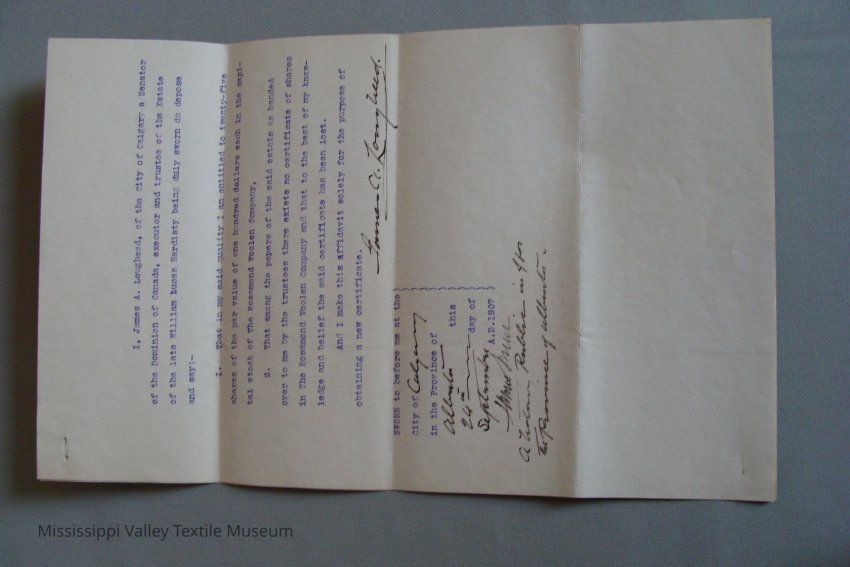 I, James A. Lougheed, of the City of Calgary a Senator
of the Dominion of Canada, executor and trustee of the Estate
of the late William Lucas Hardisty being duly sworn do depose
and say:-
1. That in my said quality I am entitled to twenty-five
shares of the par value of one hundred dollars each in the capi-
tal stock of The Rosamond Woolen Company,
2. That among the papers of the said estate as handed
over to me by the trustees there exists no certificate of shares
in The Rosamond Woolen Company and that to the best of my know-
ledge and belief the said certificate has been lost.
And I make this affidavit solely for the purpose of
obtaining a new certificate.
James A. Lougheed.
SWORN to before me at the )
City of Calgary )
in the Province of )
Alberta this )
24th day of )
September A.D.1907 )
A Notary Public in & for
the Province of Alberta.
Mississippi Valley Textile Museum